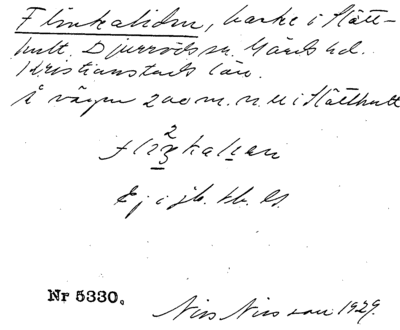 Flinkaliden, backe i Slätt-
hult. Djurröds sn. Gärds hd.
Kristianstads län.
Å vägen 200 m. n. u i Slätthult
Ej i jb. kb. Gs.
Nr 5330.
Nils Nilsson 1929.